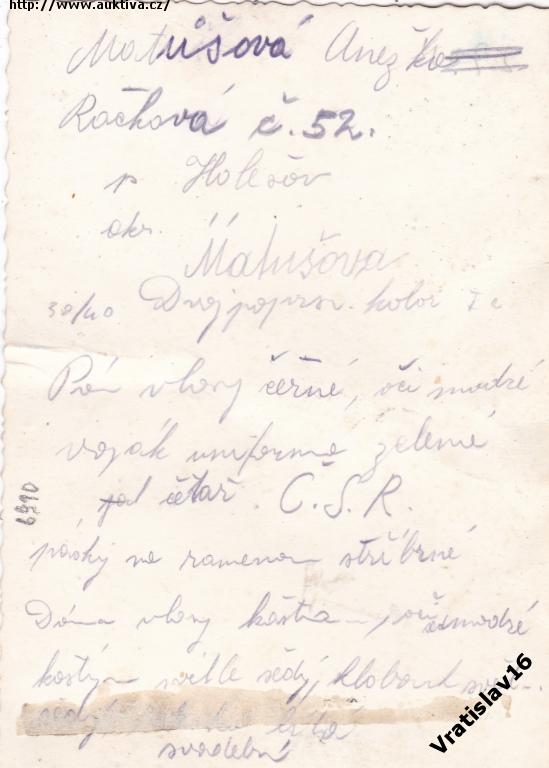 http://www.auktiva.cz/
Matúšová Anežka
Račková č. 52.
p Holešov
okr.
Matušova
30/40 Dvojpoprsn. kolor
Pán vlasy čérné, oči modré
voják uniforma zelené
četař Č.S.R.
pásky na ramenou stříbrné
Dáma vlasy kaštan, oči modré
kostým světle šédý, klobouk
svadební
6910
Vratislav16